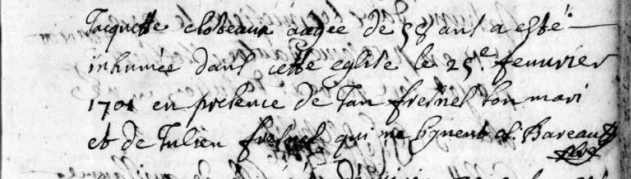 Jacquette clobeaux aagee de 55 ans a esté
inhumée dans cette eglise le 25e feuurier
1701 en presence de Jan fresnel son mari
et de Julien fresnel qui ne signent